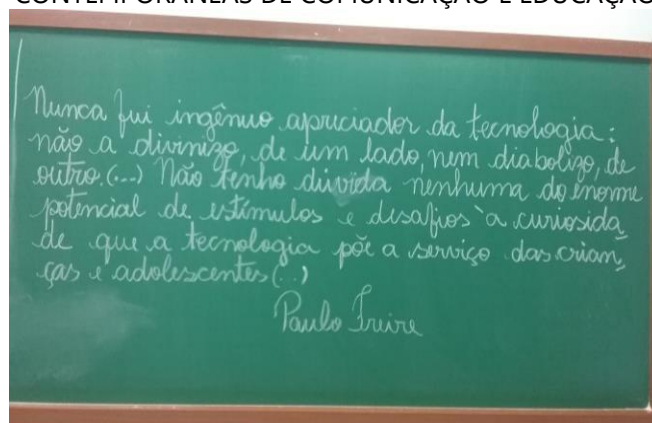 CONTEMPORÂNEAS DE COMUNICAÇÃO E EDUCAÇÃO
Nunca fui ingênuo apreciador da tecnologia:
não a divinizo, de um lado, nem diabolizo, de
outro. (...) Não tenho dúvida nenhuma do enorme
potencial de estímulos e desafios à curiosida
de que a tecnologia põe a serviço das crian
ças e adolescentes (..)
Paulo Freire